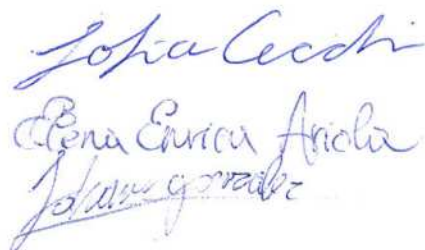 Sofia Cecchi
Elena Enrica Ariola
Johanna gonzalez